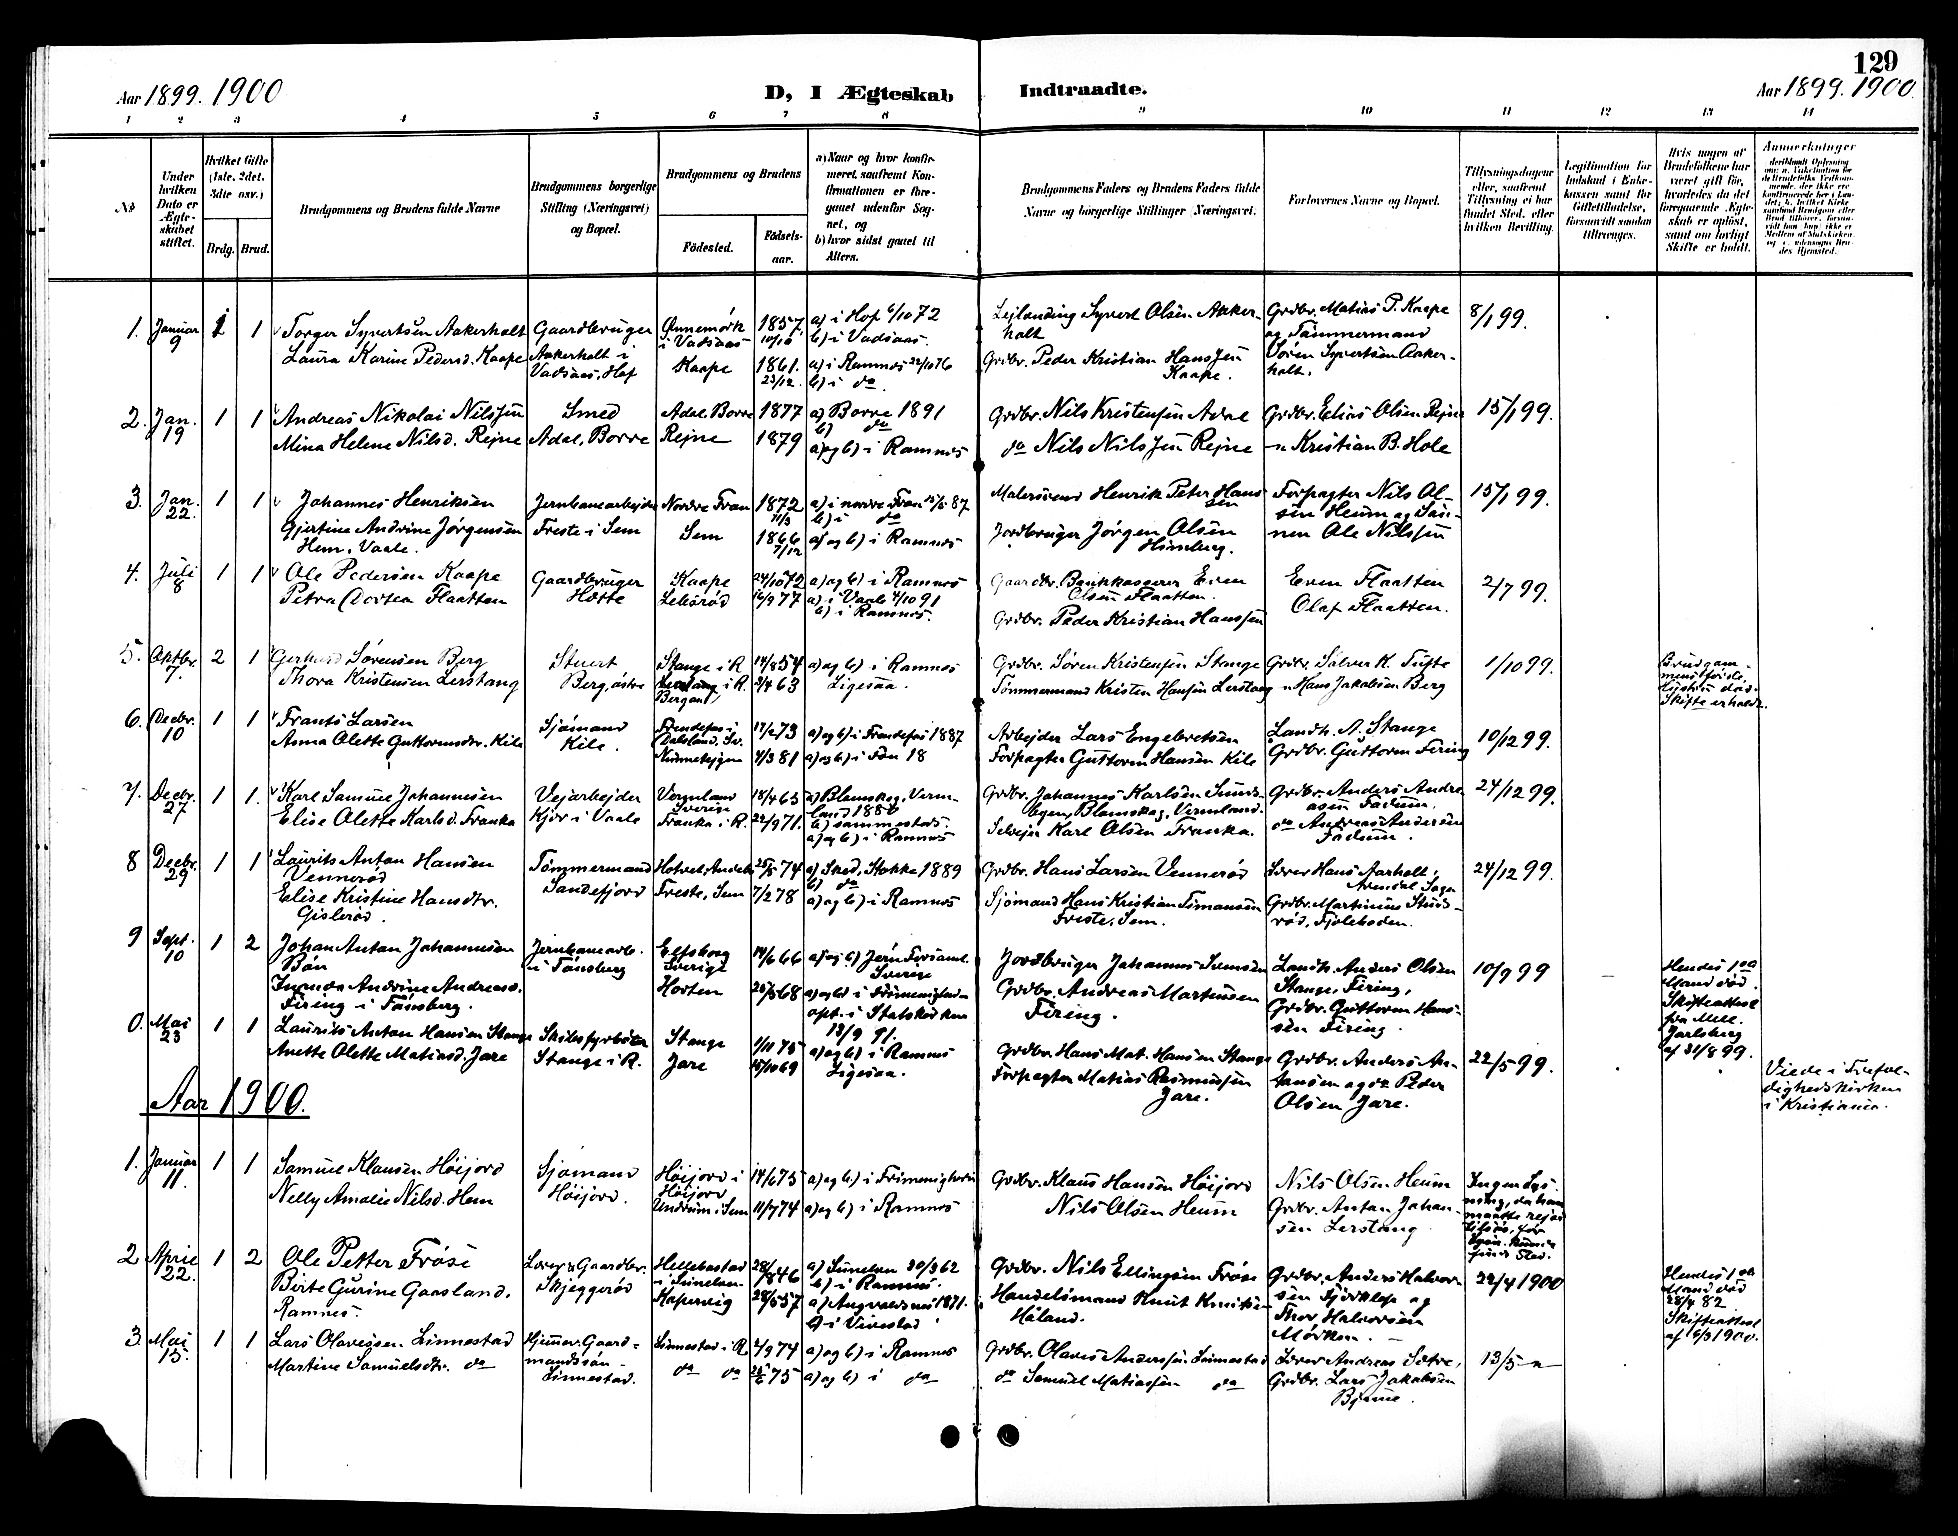 129
Aar 1899. 1900
D, I Ægteskab Indtraadte.
Aar 1899. 1900.
1 2 3 4 5 6 7 8 9 10 11 12 13 14
No
Under hvilken Dato er Ægteskabet stiftet.
Hvilket Gifte (1ste, 2det, 3die osv.)
Brdg. Brud.
Brudgommens og Brudens fulde Navne
Brudgommens borgerlige Stilling (Næringsvei) og Bopæl.
Brudgommens og Brudens
Fødested. Fødselsaar.
a) Naar og hvor konfirmeret, saafremt Konfirmationen er foregaaet udenfor Sognet, og
b) hvor sidst gaaet til Alters.
Brudgommens Faders og Brudens Faders fulde Navne og borgerlige Stillinger (Næringsvei).
Forlovernes Navne og Bopæl.
Tillysningsdagene eller, saafremt Tillysning ei har fundet Sted, efter hvilken Bevilling.
Legitimation for Indskud i Enkekassen samt for Giftetilladelse, forsaavidt saadan tiltrænges.
Hvis nogen af Brudefolkene har været gift før, hvorledes da det foregaaende Ægteskab er opløst, samt om lovligt Skifte er holdt.
Anmerkninger
1. Januar 9 1 1
Torger Syvertsen Aakerholt
Laura Karine Pedersd. Kaape
Gaardbruger
Aakerholt i
Vadsaas, Hof
Ønnemørk
i Vadsaas
Kaape
1857 10/10
1861. 23/12
a) i Hof 6/10 72
b) i Vadsaas.
a) i Ramnes 22/10 76
b) i do
Lejlænding Syvert Olsen Aakerholt
Grdbr. Peder Kristian Hanssen
Kaape.
Grdbr. Matias P. Kaape
og Tømmermand
Søren Syvertsen Aakerholt.
8/1 99.
2. Jan. 19 1 1
Andreas Nikolai Nilssen
Mina Helene Nilsd. Rejne
Smed
Adal, Borre
Adal, Borre
Rejne
1877
1879
a) Borre 1891
b) do
a) og b) i Ramnes
Grdbr. Nils Kristensen Adal
do Nils Nilssen Rejne
Grdbr. Elias Olsen Rejne
" Kristian B. Hole
15/1 99.
3. Jan. 22 1 1
Johannes Henriksen
Gjertine Andrine Jørgensen
Hem, Vaale.
Jernbanearbejder
Freste i Sem
Nordre Fron
Sem
1872 11/3
1866 7/12
a) i nordre Fron 87
b) i do
a) og b) i Ramnes
Malersvend Henrik Peter Hanssen
Jordbruger Jørgen Olsen
Himberg.
Forpagter Nils Olsen Heum og Sønnen Ole Nilssen
15/1 99.
4. Juli 8 1 1
Ole Pedersen Kaape
Petra Dortea Flaatten
Gaardbruger
Hotte
Kaape
24/10 72
16/9 77
a) og b) i Ramnes
a) i Vaale 4/10 91
b) i Ramnes.
Gaardbr. Bankkasserer Even
Olsen Flaatten.
Grdbr. Peder Kristian Hanssen
Even Flaatten
Olaf Flaatten.
2/7 99.
5. Oktbr. 7. 2 1
Gerhard Sørensen Berg
Thora Kristensen Lerstang
Stuert
Berg, østre
Stange i R
Lerstang i R.
14/8 54
3/4 63
a) og b) i Ramnes
Ligesaa.
Grdbr. Søren Kristensen Stange
Tømmermand Kristen Hansen Lerstang
Grdbr. Sølver K. Tufte
" Hans Jakobsen Berg
1/10 99.
Brudgommens første
Hustru død.
Skifte er holdt.
6. Decbr. 10 1 1
Frants Larsen
Anna Olette Guttormsdtr. Kile
Sjømand
Kile.
Frendefos i
Dalsland, Sv.
17/2 73
4/3 81
a) og b) i Frendefos 1887
a) og b) i Fon 18
Arbejder Lars Engebretsen
Forpagter Guttorm Hansen Kile
Landh. A. Stange
Grdbr. Guttorm Firing
10/12 99.
7. Decbr. 27 1 1.
Karl Samuel Johannesen
Elise Olette Karlsd. Franka
Vejarbejder
Kjør i Vaale
Vermland
Sverige
Franka i R.
18/4 65
22/9 71.
a) Blomskog, Vermland 1880
b) sammesteds
a) og b) i Ramnes
Grdbr. Johannes Karlsen, Blomskog, Vermland.
Selvejer Karl Olsen Franka.
Grdbr. Anders Andreasen Fadum.
do Andreas Andersen
Fadum.
24/12 99.
8 Decbr. 29 1 1
Laurits Anton Hansen
Vennerød
Elise Kristine Hansdtr.
Gislerød.
Tømmermand
Sandefjord
Freste, Sem
25/5 74
7/2 78
a) Skee, Stokke 1889
b) do
a) og b) i Ramnes
Grdbr. Hans Larsen Vennerød
Sjømand Hans Kristian Timansen
Freste, Sem.
Lærer Hans Aarholt,
Arendal Sogn
Grdbr. Martinius Studsrød, Fjeleboden.
24/12 99.
9 Sept. 10 1 2
Johan Anton Johannesen
Bøn
Andrine Andreasd.
Firing i Tønsberg.
Jernbanearb.
i Tønsberg
Elfsborg
Sverige
Horten
14/6 66
25/3 68
Sverige
opt. i Statskirken
13/9 91.
Jordbruger Johannes Svensen
Grdbr. Andreas Martensen
Firing.
Landh. Anders Olsen
Stange, Firing,
Grdbr. Guttorm Hanssen Firing.
10/9 99
Hendes 1ste
Mand død.
Skifteattest
fra Mell.
Jarlsberg
af 31/8 99.
0. Mai 23 1 1
Laurits Anton Hansen Stange
Anette Olette Matiasd. Jare
Skibsfyrbøder
Stange i R.
Stange
Jare
1/11 75
15/10 69
a) og b) i Ramnes
Ligesaa.
Grdbr. Hans Mat. Hansen Stange
Forpagter Matias Rasmussen
Jare.
Grdbr. Anders Antonsen og do Peder
Olsen Jare.
22/5 99.
Viede i Trefoldighedskirken
i Kristiania.
Aar 1900.
1. Januar 11. 1 1
Samuel Klausen Høijord
Nelly Amalie Nilsd. Hem
Sjømand
Høijord.
Høijord i
Høijord
Undrum i Sem
14/6 75
11/7 74
a) og b) i Frimenigheden
a) og b) i Ramnes
Grdbr. Klaus Hansen Høijord
Nils Olsen Heum
Nils Olsen Heum
Grdbr. Anton Johansen Lerstang
Ingen Lysning, da han
maatte rejse
tilsjøs, før
Lysn. kunde
finde Sted.
2 April 22. 1 2
Ole Petter Frøse
Birte Gurine Gaasland.
Ramnes.
Lærer & Gaardbr.
Skjeggerød
Hellebostad
Kopervig
28/8 46
28/5 57
a) Sunelven 30/9 62
b) i Ramnes.
a) Augvaldsnes 1871.
b) i Vivestad
Grdbr. Nils Ellingsen Frøse
Handelsmand Knut Knutsen
Høland.
Grdbr. Anders Halvorsen Fjørklep og
Thor Halvorsen
Mørken.
22/4 1900
Hendes 1ste
Mand død
28/4 82
Skifteattest
af 6/3 1900.
3. Mai 13. 1 1
Lars Olavessen Linnestad
Martine Samuelsdtr. do
Hjemmev. Gaardmandssøn
Linnestad.
Linnestad i R
do do
2/9 74
25/6 75
a) og b) i Ramnes
a) og b) i do
Grdbr. Olaves Anderssen Linnestad
do Samuel Matiassen do
Lærer Andreas Sætre,
Grdbr. Lars Jakobsen
Bjune.
13/5 "